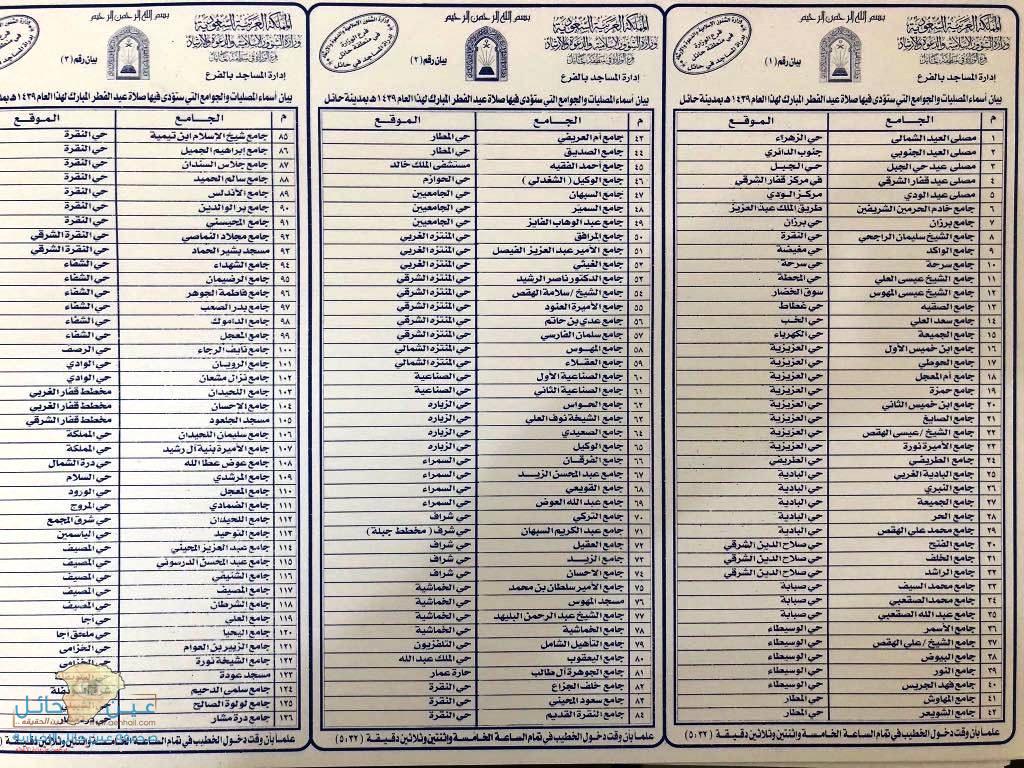 بسم الله الرحمن الرحيم
المملكة العربية السعودية
وزارة الشؤون الإسلامية والدعوة والإرشاد
إدارة المساجد بالفرع
بيان رقم (١)
بيان أسماء المصليات والجوامع التي ستؤدى فيها صلاة عيد الفطر المبارك لهذا العام ١٤٣٩هـ بمدينة حائل
م الجامع الموقع
١ مصلى العيد الشمالي حي الزهراء
٢ مصلى العيد الجنوبي جنوب الدائري
٣ مصلى عيد حي الجبل حي الجبل
٤ مصلى عيد قفار الشرقي في مركز قفار الشرقي
٥ مصلى عيد الودي مركز لودي
٦ جامع خادم الحرمين الشريفين طريق الملك عبد العزيز
٧ جامع برزان حي برزان
٨ جامع الشيخ سليمان الراجحي حي النقرة
٩ جامع الوابكد حي مغيضة
١٠ جامع سرحة حي سرحة
١١ جامع الشيخ عيسى العلي حي المحطة
١٢ جامع الشيخ عيسى المهوس سوق الخضار
١٣ جامع الصقيه حي غطاط
١٤ جامع سعد العلي حي الخب
١٥ جامع الجميعة حي الكهرباء
١٦ جامع ابن خميس الأول حي العزيزية
١٧ جامع العوطي حي العزيزية
١٨ جامع أم المعجل حي العزيزية
١٩ جامع حمزة حي العزيزية
٢٠ جامع ابن خميس الثاني حي العزيزية
٢١ جامع الصايغ حي العزيزية
٢٢ جامع الشيخ / عيسى الهقص حي العزيزية
٢٣ جامع الأميرة نورة حي العزيزية
٢٤ جامع الطريفي حي الطريفي
٢٥ جامع البادية الغربي حي البادية
٢٦ جامع النبري حي البادية
٢٧ جامع الجميعة حي البادية
٢٨ جامع الحر حي البادية
٢٩ جامع محمد علي الهقص حي البادية
٣٠ جامع الفتح حي صلاح الدين الشرقي
٣١ جامع الخلف حي صلاح الدين الشرقي
٣٢ جامع الراشد حي صلاح الدين الشرقي
٣٣ جامع محمد السيف حي صبابة
٣٤ جامع محمد الصقعبي حي صبابة
٣٥ جامع عبد الله الصقعبي حي صبابة
٣٦ جامع الأسمر حي الوسيطاء
٣٧ جامع الشيخ / علي الهقص حي الوسيطاء
٣٨ جامع البيوض حي الوسيطاء
٣٩ جامع النور حي الوسيطاء
٤٠ جامع فهد الجريس حي الوسيطاء
٤١ جامع المهاوش حي المطار
٤٢ جامع الشويعر حي المطار
علماً بأن وقت دخول الخطيب في تمام الساعة الخامسة واثنتين وثلاثين دقيقة (٥:٣٢)
بسم الله الرحمن الرحيم
المملكة العربية السعودية
وزارة الشؤون الإسلامية والدعوة والإرشاد
إدارة المساجد بالفرع
بيان رقم (٢)
بيان أسماء المصليات والجوامع التي ستؤدى فيها صلاة عيد الفطر المبارك لهذا العام ١٤٣٩هـ بمدينة حائل
م الجامع الموقع
٤٣ جامع أم العريفي حي المطار
٤٤ جامع الصديق حي المطار
٤٥ جامع أحمد الفقيه مستشفى الملك خالد
٤٦ جامع الوكيل (الشغدلي) حي الحوازم
٤٧ جامع السبهان حي الجامعيين
٤٨ جامع السمير حي الجامعيين
٤٩ جامع عبد الوهاب الفايز حي الجامعيين
٥٠ جامع المرافق حي المنتزه الغربي
٥١ جامع الأمير عبد العزيز الفيصل حي المنتزه الغربي
٥٢ جامع الغيثي حي المنتزه الغربي
٥٣ جامع الدكتور ناصر الرشيد حي المنتزه الشرقي
٥٤ جامع الشيخ / سلامة الهقص حي المنتزه الشرقي
٥٥ جامع الأميرة العنود حي المنتزه الشرقي
٥٦ جامع عدي بن حاتم حي المنتزه الشرقي
٥٧ جامع سلمان الفارسي حي المنتزه الشرقي
٥٨ جامع المهوس حي المنتزه الشمالي
٥٩ جامع العقلاء حي المنتزه الشمالي
٦٠ جامع الصناعية الأول حي الصناعية
٦١ جامع الصناعية الثاني حي الصناعية
٦٢ جامع الحواس حي الزبارة
٦٣ جامع الشيخة نوف العلي حي الزباره
٦٤ جامع الصعيدي حي الزباره
٦٥ جامع الوكيل حي الزباره
٦٦ جامع الفرقان حي السمراء
٦٧ جامع عبد المحسن الزيد حي السمراء
٦٨ جامع القويعي حي السمراء
٦٩ جامع عبد الله العوض حي السمراء
٧٠ جامع التركي حي شراف
٧١ جامع عبد الكريم السبهان حي شرف (مخطط جبلة)
٧٢ جامع العقيل حي شراف
٧٣ جامع الزيد حي شراف
٧٤ جامع الاحسان حي شراف
٧٥ جامع الأمير سلطان بن محمد حي الخماشية
٧٦ مسجد المهوس حي الخماشية
٧٧ جامع الشيخ عبد الرحمن البليهد حي الخماشية
٧٨ جامع الخماشية حي الخماشية
٧٩ جامع التأهيل الشامل حي التلفزيون
٨٠ جامع اليعقوب حي الملك عبد الله
٨١ جامع الجوهرة آل طالب حارة عمار
٨٢ جامع خلف الجزاع حي النقرة
٨٣ جامع سعود المحيني حي النقرة
٨٤ جامع النقرة القديم حي النقرة
علماً بأن وقت دخول الخطيب في تمام الساعة الخامسة واثنتين وثلاثين دقيقة (٥:٣٢)
بسم الله الرحمن الرحيم
المملكة العربية السعودية
وزارة الشؤون الإسلامية والدعوة والإرشاد
إدارة المساجد بالفرع
بيان رقم (٣)
بيان أسماء المصليات والجوامع التي ستؤدى فيها صلاة عيد الفطر المبارك لهذا العام ١٤٣٩هـ
م الجامع الموقع
٨٥ جامع شيخ الاسلام ابن تيمية حي النقرة
٨٦ جامع إبراهيم الجميل حي النقرة
٨٧ جامع جلاس السندان حي النقرة
٨٨ جامع سالم الحميد حي النقرة
٨٩ جامع الأندلس حي النقرة
٩٠ جامع بر الوالدين حي النقرة
٩١ جامع المحيسني حي النقرة
٩٢ جامع مجلاد النماصي حي النقرة الشرقي
٩٣ مسجد بشير الحماد حي النقرة الشرقي
٩٤ جامع الشهداء حي الشفاء
٩٥ جامع الرضيمان حي الشفاء
٩٦ جامع فاطمة الجوهر حي الشفاء
٩٧ جامع بدر الصعب حي الشفاء
٩٨ جامع الداموك حي الشفاء
٩٩ جامع المعجل حي الشفاء
١٠٠ جامع نايف الرجاء حي الرصف
١٠١ جامع الرويان حي الوادي
١٠٢ جامع نزال مشعان حي الوادي
١٠٣ جامع اللحيدان مخطط قفار الغربي
١٠٤ جامع الإحسان مخطط قفار الغربي
١٠٥ مسجد الجلعود مخطط قفار الشرقي
١٠٦ جامع سليمان اللحيدان حي المملكة
١٠٧ جامع الأميرة بنية آل رشيد حي المملكة
١٠٨ جامع عوض عطا الله حي درة الشمال
١٠٩ جامع المرشدي حي السلام
١١٠ جامع المعجل حي الورود
١١١ جامع الضمادي حي المروج
١١٢ جامع اللحيدان حي شرق المجمع
١١٣ جامع التوحيد حي الياسمين
١١٤ جامع عبد العزيز المحيني حي المصيف
١١٥ جامع عبد المحسن الدرسوني حي المصيف
١١٦ جامع الشنيفي حي المصيف
١١٧ جامع المصيف حي المصيف
١١٨ جامع الشرطان حي المصيف
١١٩ جامع العلي حي أجا
١٢٠ جامع اليحيا حي ملحق أجا
١٢١ جامع الزبير بن العوام حي الخزامى
١٢٢ جامع الشيخة نورة حي الخزامى
١٢٣ مسجد عودة
١٢٤ جامع سلمى الدحيم
١٢٥ جامع لولوة الصالح
١٢٦ جامع درة مشار
علماً بأن وقت دخول الخطيب في تمام الساعة الخامسة واثنتين وثلاثين
عين حائل